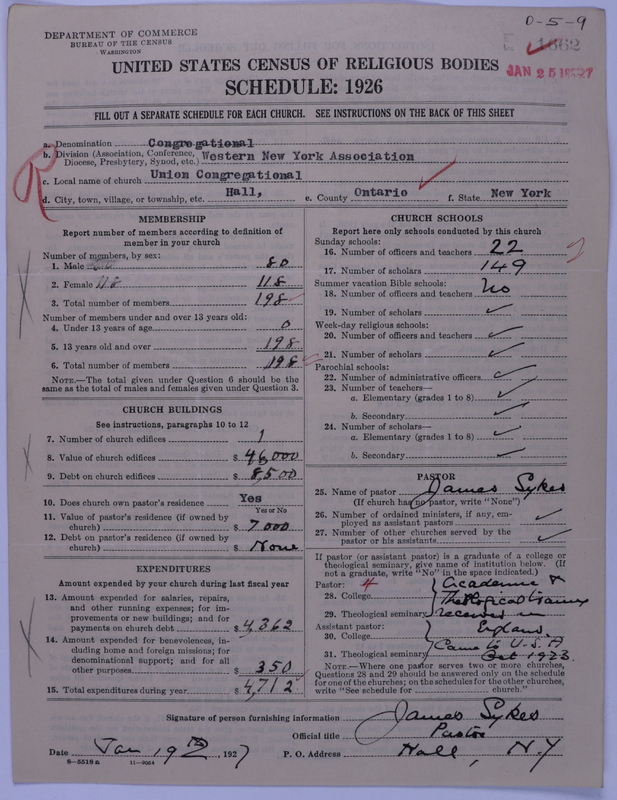 DEPARTMENT OF COMMERCE
BUREAU OF THE CENSUS
WASHINGTON
0-5-9
1662
JAN 25 1927
UNITED STATES CENSUS OF RELIGIOUS BODIES
SCHEDULE: 1926
FILL OUT A SEPARATE SCHEDULE FOR EACH CHURCH. SEE INSTRUCTIONS ON THE BACK OF THIS SHEET
a. Denomination Congregational
b. Division (Association, Conference, Diocese, Presbytery, Synod, etc.) Western New York Association
c. Local name of church Union Congregational
d. City, town, village, or township, etc. Hall, e. County Ontario f. State New York
R
MEMBERSHIP
Report number of members according to definition of
member in your church
Number of members, by sex:
1. Male 80
2. Female 118 118
3. Total number of members 198
Number of members under and over 13 years old:
4. Under 13 years of age 0
5. 13 years old and over 198
6. Total number of members 198
NOTE.—The total given under Question 6 should be the
same as the total of males and females given under Question 3.
CHURCH BUILDINGS
See instructions, paragraphs 10 to 12
7. Number of church edifices 1
8. Value of church edifices $ 46,000
9. Debt on church edifices $ 8,500
10. Does church own pastor's residence Yes
Yes or No
11. Value of pastor's residence (if owned by
church) $ 7000
12. Debt on pastor's residence (if owned by
church) $ None
EXPENDITURES
Amount expended by your church during last fiscal year
13. Amount expended for salaries, repairs,
and other running expenses; for im-
provements or new buildings; and for
payments on church debt $ 4,362
14. Amount expended for benevolences, in-
cluding home and foreign missions; for
denominational support; and for all
other purposes $ 350
15. Total expenditures during year $ 4,712
CHURCH SCHOOLS
Report here only schools conducted by this church
Sunday schools:
16. Number of officers and teachers 22
17. Number of scholars 149
Summer vacation Bible schools:
18. Number of officers and teachers No
19. Number of scholars
Week-day religious schools:
20. Number of officers and teachers
21. Number of scholars
Parochial schools:
22. Number of administrative officers
23. Number of teachers—
a. Elementary (grades 1 to 8)
b. Secondary
24. Number of scholars—
a. Elementary (grades 1 to 8)
b. Secondary
PASTOR
25. Name of pastor James Sykes
(If church has no pastor, write "None")
26. Number of ordained ministers, if any, em-
ployed as assistant pastors
27. Number of other churches served by the
pastor or his assistants
If pastor (or assistant pastor) is a graduate of a college or
theological seminary, give name of institution below. (If
not a graduate, write "No" in the space indicated.)
Pastor: 4
28. College Academic &
Theological training
29. Theological seminary received in
Assistant pastor: England.
30. College Came to U.S.A
31. Theological seminary Oct 1923.
NOTE.—Where one pastor serves two or more churches,
Questions 28 and 29 should be answered only on the schedule
for one of the churches; on the schedules for the other churches,
write "See schedule for church."
Signature of person furnishing information James Sykes
Official title Pastor
Date Jan 19th, 1927 P. O. Address Hall, N.Y
8—5518 a 11—9054